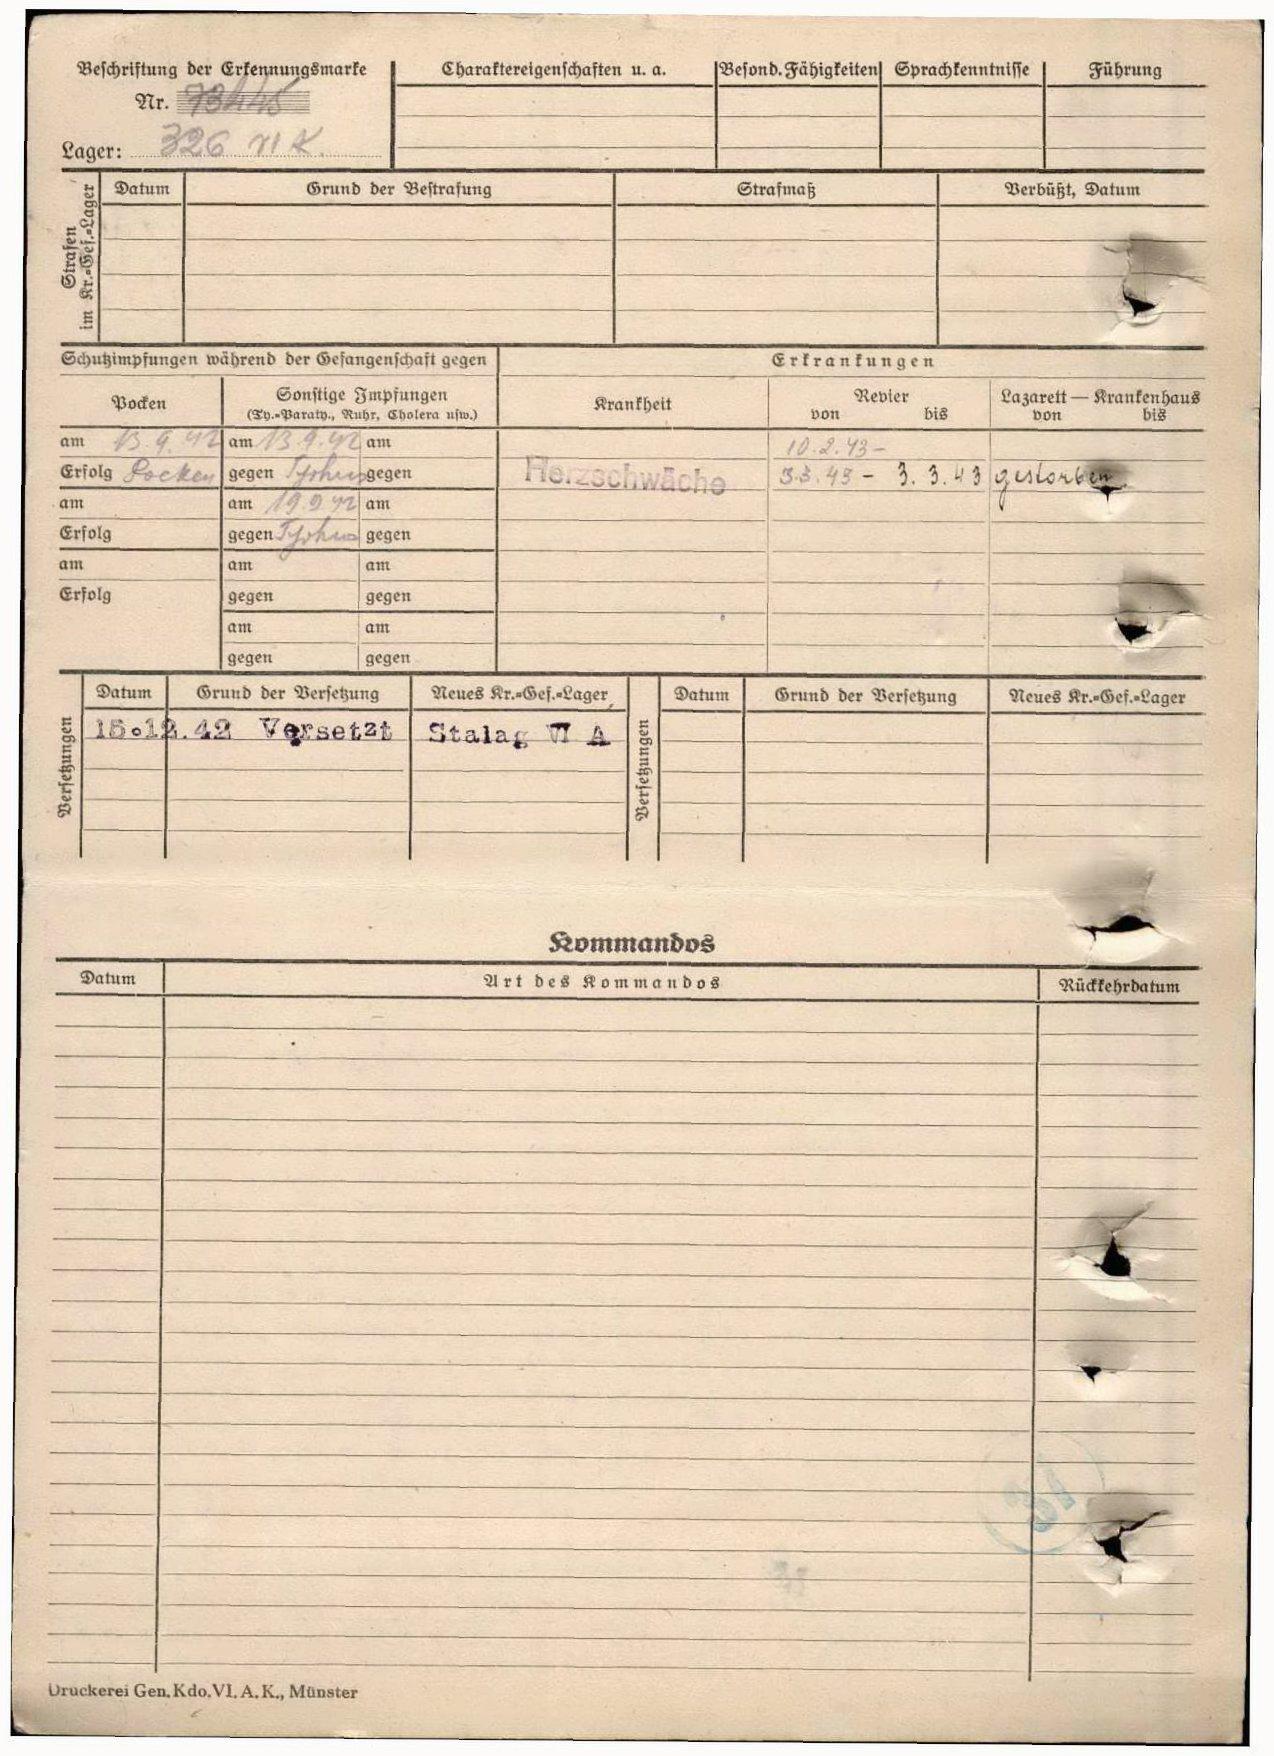 Beschriftung der Erkennungsmarke
Nr. 73445
Lager: 326 VI K.
Charaktereigenschaften u. a.
Besond. Fähigkeiten
Sprachkenntnisse
Führung
Strafen im Kr.=Gef.=Lager
Datum
Grund der Bestrafung
Strafmaß
Verbüßt, Datum
Schutzimpfungen während der Gefangenschaft gegen
Erkrankungen
Pocken
Sonstige Impfungen
(Ty.=Paraty., Ruhr, Cholera usw.)
Krankheit
Revier
von bis
Lazarett — Krankenhaus
von bis
am 13.9.42 am 13.9.42 am
10.2.43 –
Erfolg Pocken gegen Typhus gegen
Herzschwäche 3.3.43 – 3.3.43 gestorben
am am 19.9.42 am
Erfolg gegen Typhus gegen
am am am
Erfolg gegen gegen
am am
gegen gegen
Versetzungen
Datum Grund der Versetzung Neues Kr.=Gef.=Lager
15.12.42 Versetzt Stalag VI A
Versetzungen
Datum Grund der Versetzung Neues Kr.=Gef.=Lager
Kommandos
Datum Art des Kommandos Rückkehrdatum
Druckerei Gen. Kdo. VI. A. K., Münster